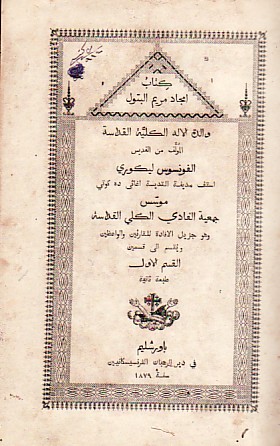 كتاب
امجاد مريم البتول
والدة الاله الكلية القداسة
المؤلف من القديس
الفونسوس ليكوري
اسقف مدينة القديسة اغاثي ده كوتي
موسس
جمعية الفادي الكلي القداسة
وهو جزيل الافادة للقارئين والواعظين
وينقسم الى قسمين
القسم الاول
طبعة ثانية
باورشليم
في دير الرهبان الفرنسيسكانيين
سنة ١٨٧٩